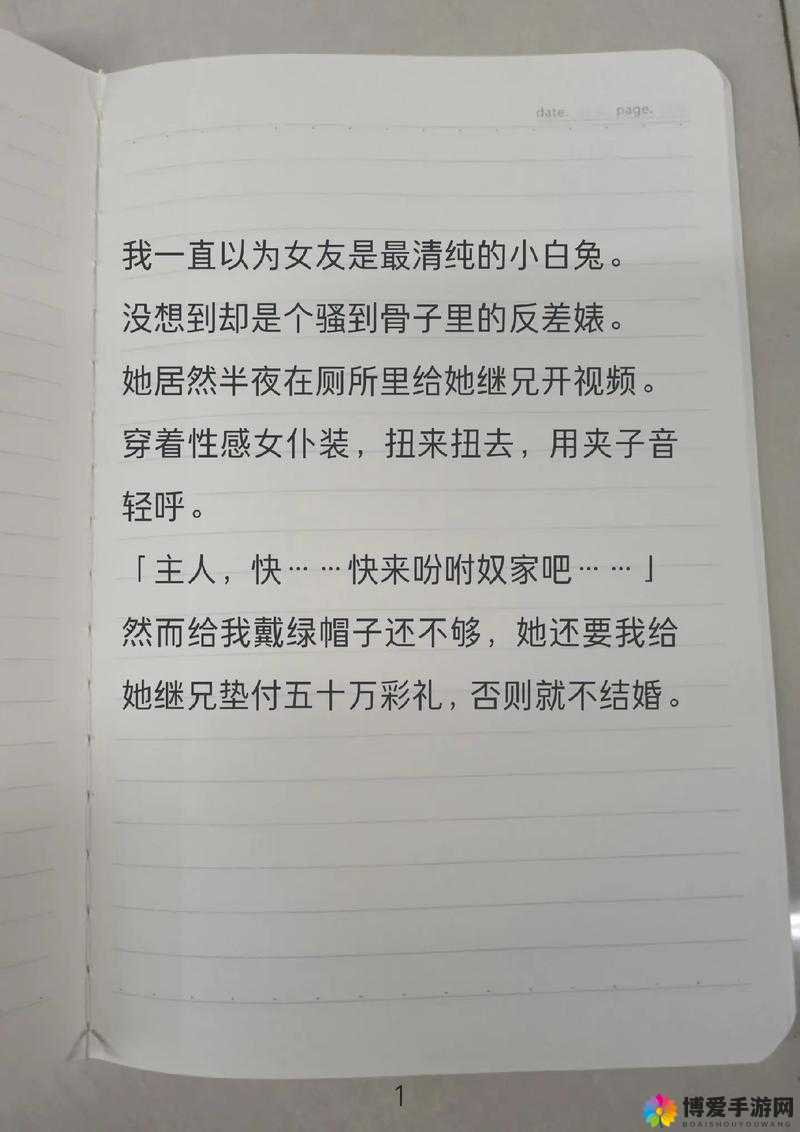 date. page.
我一直以为女友是最清纯的小白兔。
没想到却是个骚到骨子里的反差婊。
她居然半夜在厕所里给她继兄开视频。
穿着性感女仆装，扭来扭去，用夹子音
轻呼。
「主人，快……快来吩咐奴家吧……」
然而给我戴绿帽子还不够，她还要我给
她继兄垫付五十万彩礼，否则就不结婚。
1
博爱手游网
BOAISHOUYOUWANG